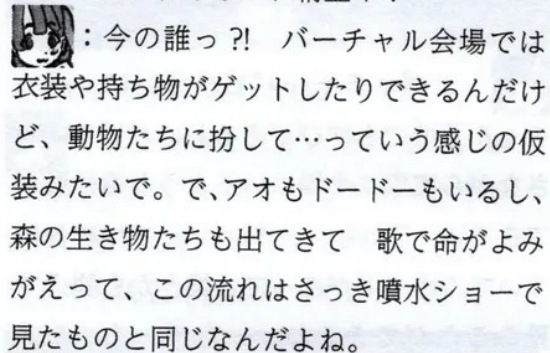 ：今の誰っ?!　バーチャル会場では
衣装や持ち物がゲットしたりできるんだけ
ど、動物たちに扮して…っていう感じの仮
装みたいで。で、アオもドードーもいるし、
森の生き物たちも出てきて　歌で命がよみ
がえって、この流れはさっき噴水ショーで
見たものと同じなんだよね。